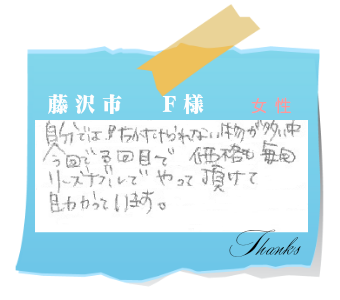 藤沢市 F様 女性
自分では片付けられない物が多い中
今回で3回目で 価格も毎回
リーズナブルで やって頂けて
助かっています。
Thanks